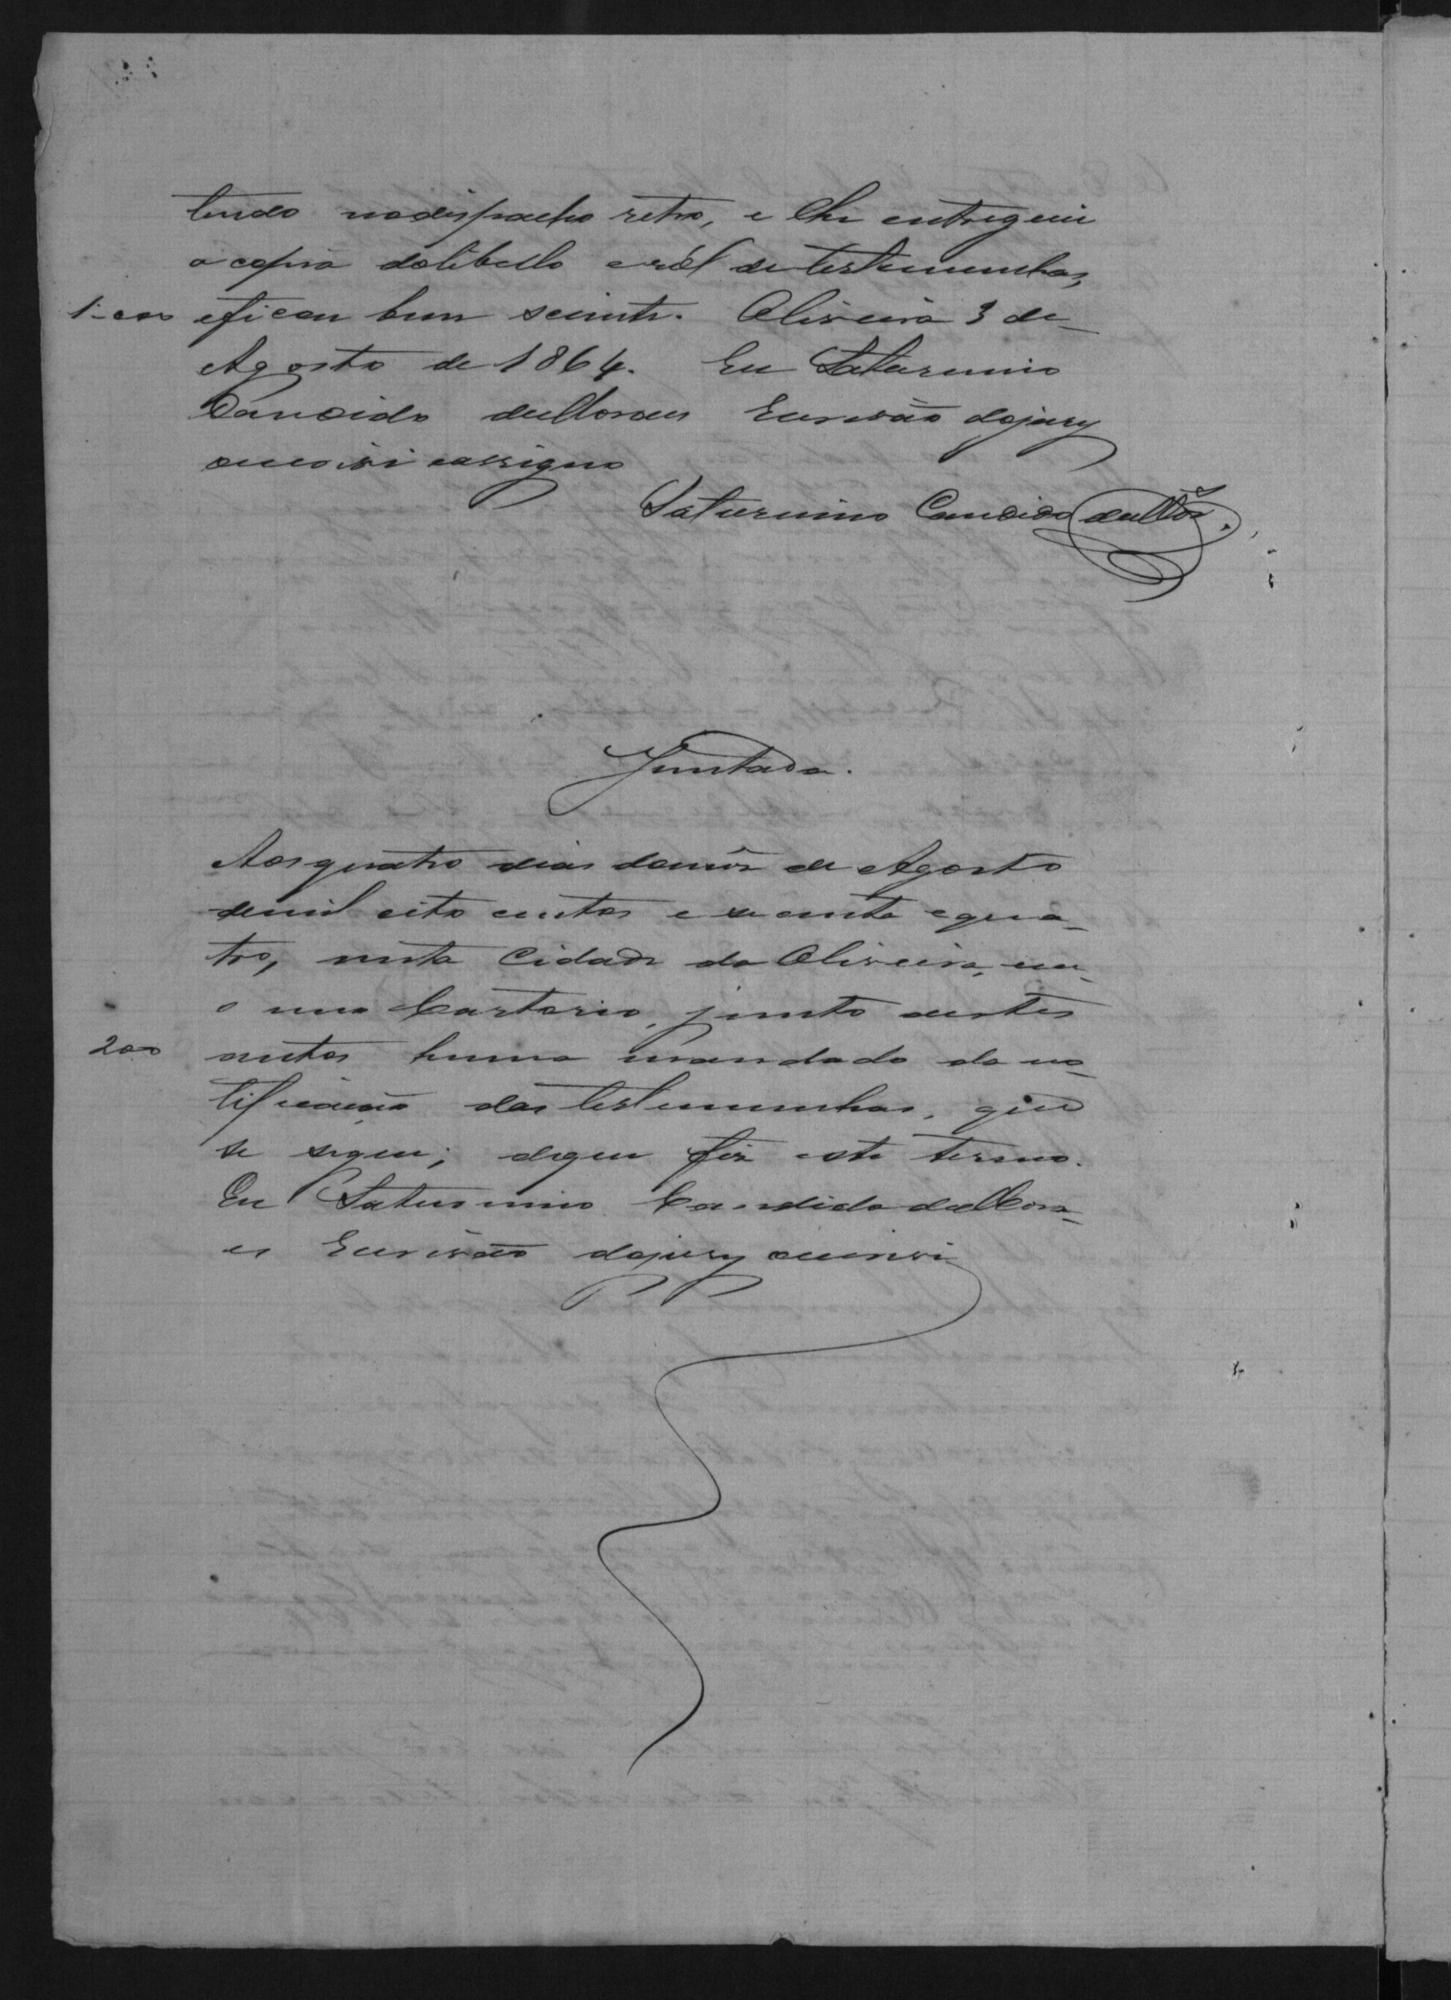 tendo no despacho retro, e lhe entreguei
a copia do libello e ról de testemunhas,
1:000 e ficou bem sciente. Oliveira 3 de
Agosto de 1864. Eu Saturnino
Candido de Moraes Escrivão do jury
escrevi e assigno
Saturnino Candido de Mor.es
Juntada.
Aos quatro dias do mês de Agosto
de mil oito centos e sesenta e qua-
tro, nesta Cidade da Oliveira, em
o meu Cartorio, junto a estes
200 autos hum mandado de no-
tificação das testemunhas, que
se segue; do que fiz este termo.
Eu Saturnino Candido de Mora-
es Escrivão do jury o escrevi